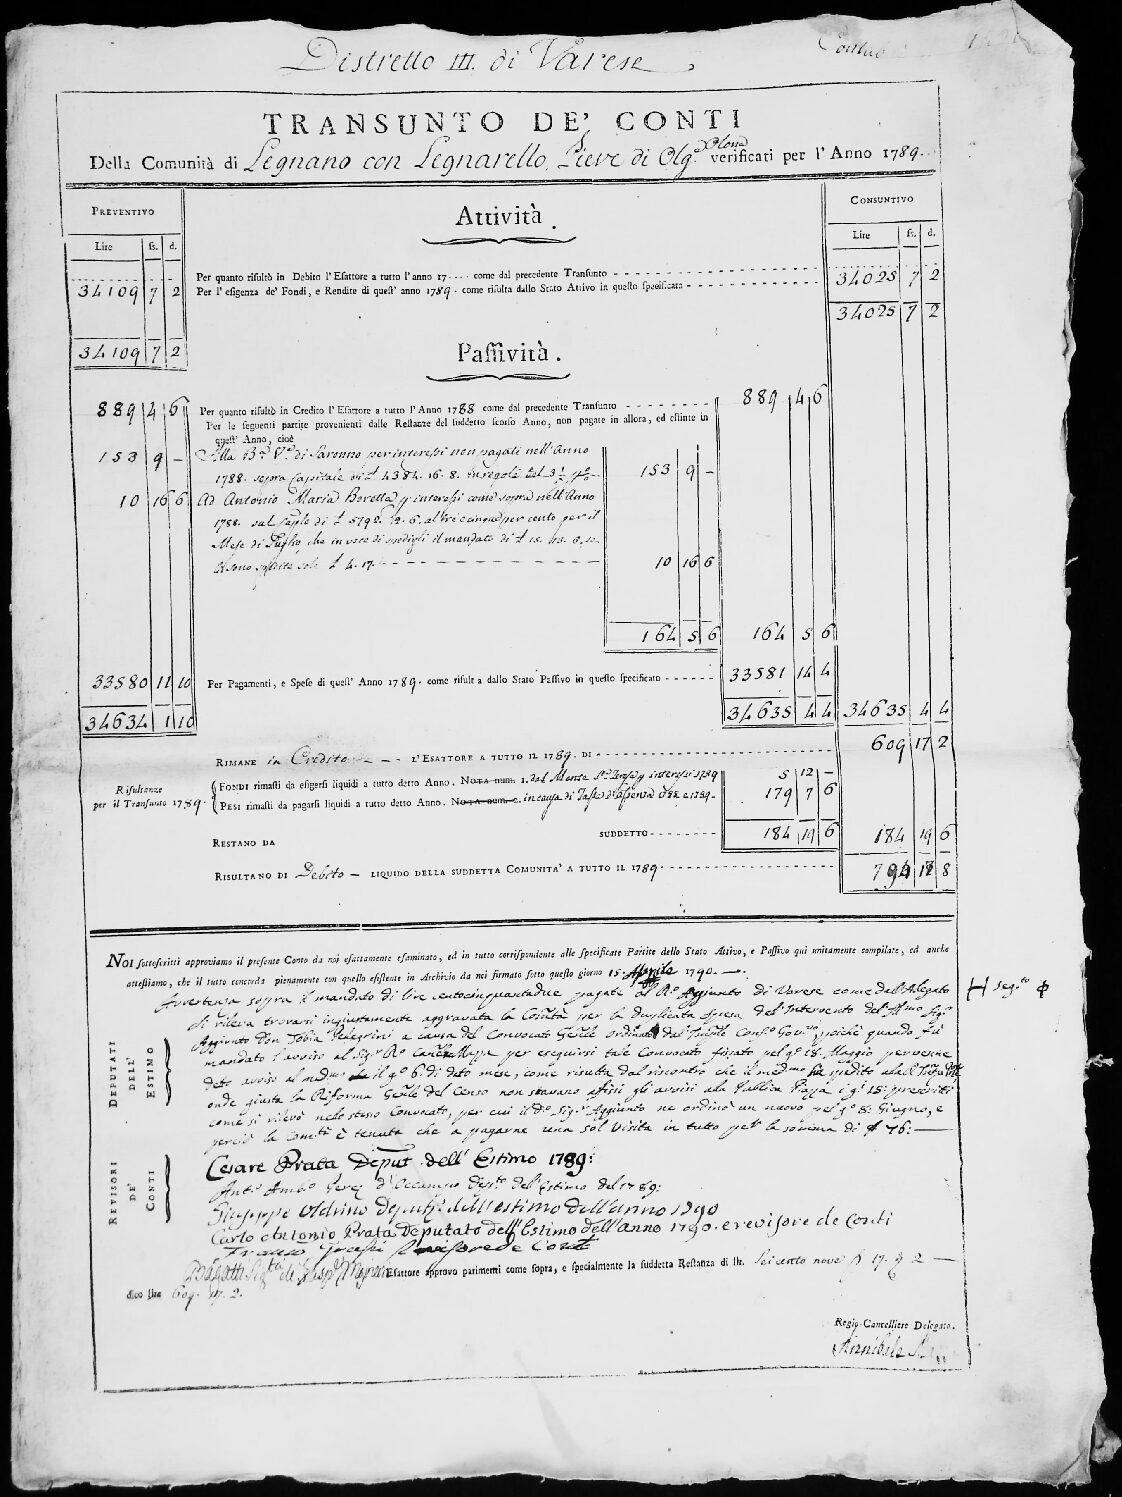 Distretto III. di Varese
TRANSUNTO DE' CONTI
Della Comunità di Legnano con Legnarello, Pieve di Olg.e Olona verificati per l'Anno 1789.
PREVENTIVO
Attività.
CONSUNTIVO
Lire ſs. d.
Lire ſs. d.
Per quanto risultò in Debito l'Esattore a tutto l'anno 17.... come dal precedente Transunto
34109 7 2 Per l'esigenza de' Fondi, e Rendite di quest'anno 1789. come risulta dallo Stato Attivo in questo specificato 34025 7 2
34025 7 2
34109 7 2
Passività.
889 4 6 Per quanto risultò in Credito l'Esattore a tutto l'Anno 1788 come dal precedente Transunto 889 4 6
Per le seguenti partite provenienti dalle Restanze del suddetto scorso Anno, non pagate in allora, ed estinte in
quest'Anno, cioè
153 9 – Alla B. V. di Saronno per interessi non pagati nell'Anno
1788. sopra Capitale di £ 4384. 16. 8. in regola del 3 1/2 153 9 –
10 16 6 Ad Antonio Maria Boretta interessi come sopra nell'Anno
1788. sul di £ 5792. 12. 6. al tre e cinque per cento per il
Mese di Luglio, che in vece di il mandato di £ 15.
£ 4. 17. 10 16 6
164 5 6 164 5 6
33580 11 10 Per Pagamenti, e Spese di quest'Anno 1789. come risulta dallo Stato Passivo in questo specificato 33581 14 4
34634 1 10 34635 4 4 34635 4 4
RIMANE in Credito L'ESATTORE A TUTTO IL 1789. DI 609 17 2
Risultanze
per il Transunto 1789.
FONDI rimasti da esigersi liquidi a tutto detto Anno. NOTA num. 1. dal Monte S.ta Teresa interessi 1789 5 12 –
PESI rimasti da pagarsi liquidi a tutto detto Anno. NOTA num. 2. in causa di Tasse d'assenza 1788 e 1789 179 7 6
RESTANO DA SUDDETTO 184 19 6 184 19 6
RISULTANO DI Debito – LIQUIDO DELLA SUDDETTA COMUNITA' A TUTTO IL 1789 8
NOI sottoscritti approviamo il presente Conto da noi esattamente esaminato, ed in tutto corrispondente alle specificate Partite dello Stato Attivo, e Passivo qui unitamente compilate, ed anche
attestiamo, che il tutto concorda pienamente con quello esistente in Archivio da noi firmato sotto questo giorno 15. Aprile 1790.
Avvertenza sopra il mandato di lire centocinquantadue pagate al R.o Aggiunto di Varese come dall'Allegato
si rileva trovarsi ingiustamente aggravata la Com.tà per la duplicata spesa dell'Intervento dell'Ill.mo Sig.r
Aggiunto Don Tobia Pelegrini a causa del Convocato Gen.le ordinato dal Cons.o Gov.o, poichè quando fu
mandato l'avviso al Sig.r R.o Canc.re Mazza per eseguirsi tale Convocato fissato pel g.o 18. Maggio pervenne
deto avviso al med.mo il g.o 6. di deto mese, come risulta dal riscontro che il med.mo
onde giusta la Riforma Gen.le del Censo non stavano affissi gli avvisi ala Publica Piazza i g.i 15: prescritti
come si rilevò nelo steso Convocato, per cui il d.o Sig.r Aggiunto ne ordinò un nuovo pel g.o 8: Giugno, e
perciò la Com.tà è tenuta che a pagarne una sol visita in tutto per la somma di £ 76:
DEPUTATI
DELL'
ESTIMO
REVISORI
DE'
CONTI
Cesare Prata Deput. dell'Estimo 1789:
Ant.o Amb.o d'Occampo Dep.to del'Estimo del 1789:
Giuseppe Oldrino Deput. dell'estimo dell'anno 1790
Carlo Antonio Prata Deputato dell'Estimo dell'anno 1790. e revisore de Conti
Revisore de Conti
Esattore approvo parimenti come sopra, e specialmente la suddetta Restanza di llr. Seicento nove 17. 2
dico llre 609. 17. 2.
Regio-Cancelliere Delegato.